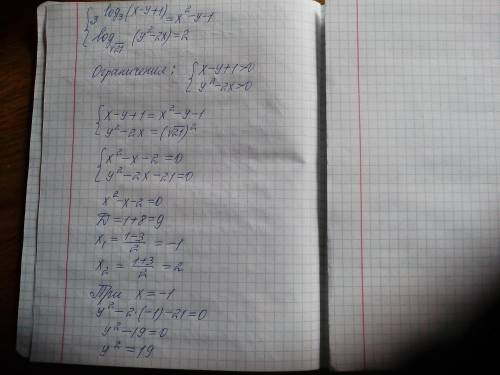 { 3^{log₃(x-y+1)} = x²-y-1
{ log_{√21}(y²-2x)=2
Ограничения: { x-y+1>0
{ y²-2x>0
{ x-y+1 = x²-y-1
{ y²-2x = (√21)²
{ x²-x-2=0
{ y²-2x-21=0
x²-x-2=0
D=1+8=9
x₁ = (1-3)/2 = -1
x₂ = (1+3)/2 = 2
При x=-1
y²-2·(-1)-21=0
y²-19=0
y²=19